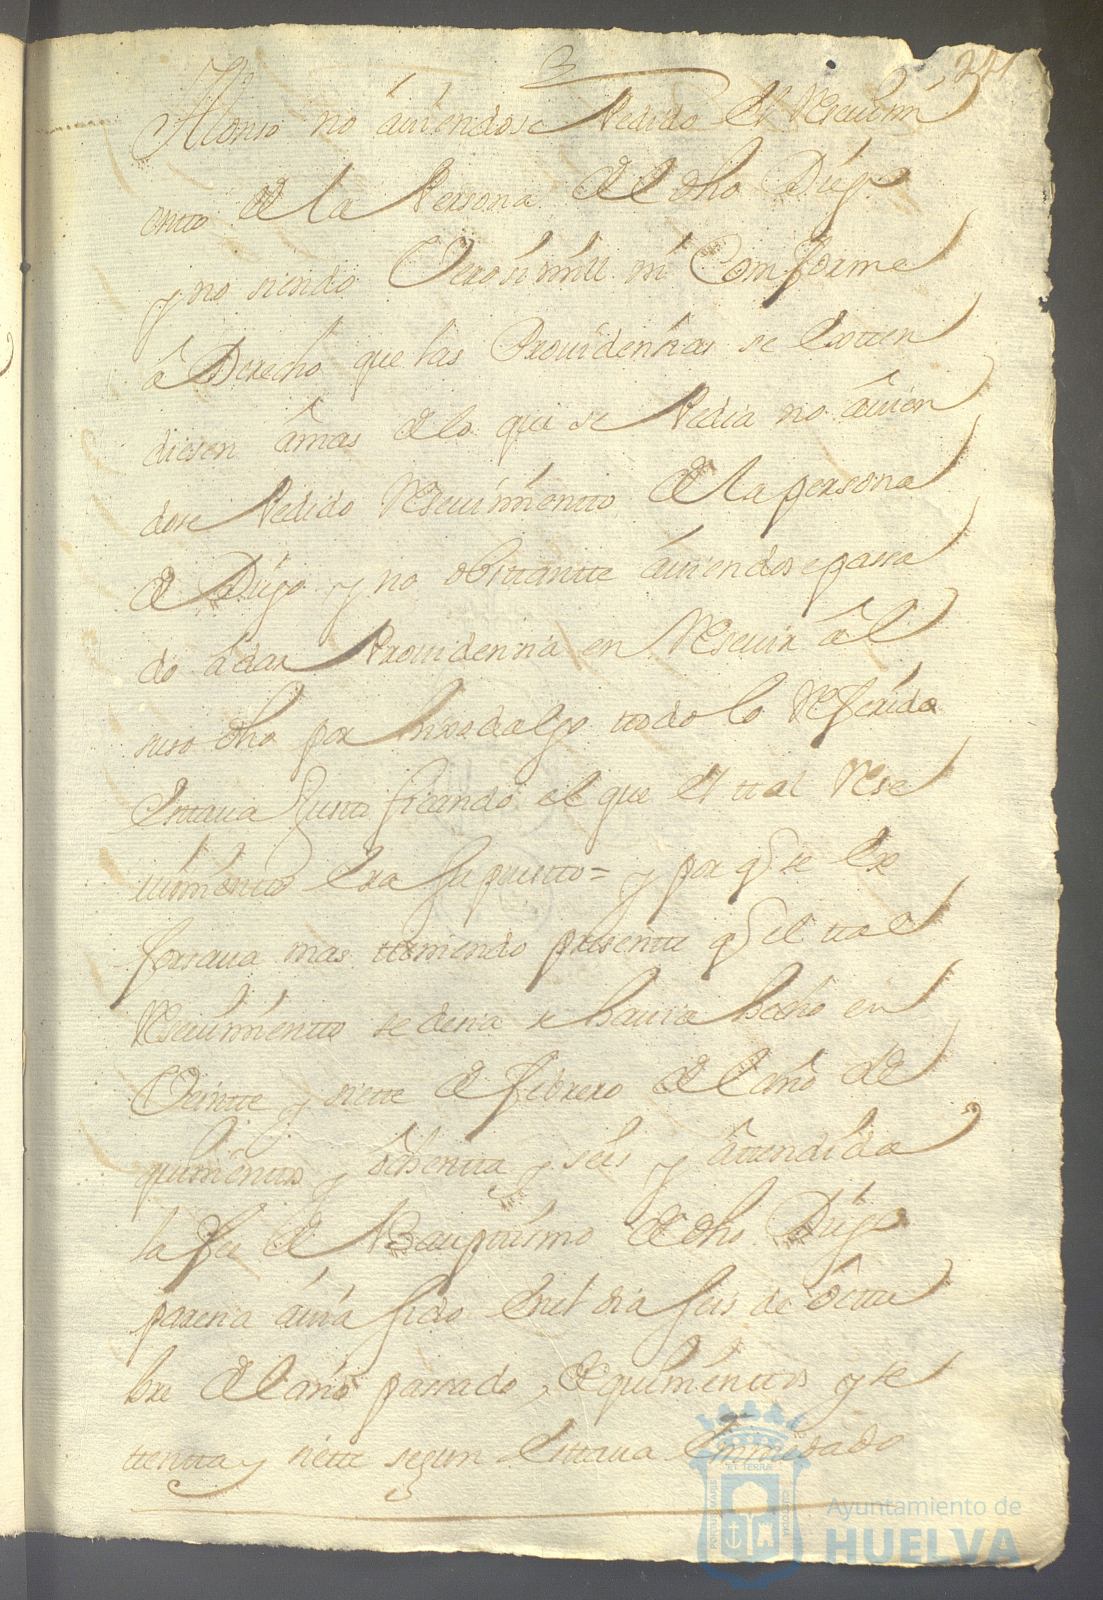 241
Alonso no áuiendose Pedido el Resciuim
entto de la Persona del dho Diego
y no siendo Verosimill ni Comforme
â Derecho que las Prouidenzias se exttien
diesen âmas de lo que se Pedia no âuien
dose Pedido Resciuimientto de la persona
de Diego y no obsttantte âuiendose passa
do â dar Prouidenzia en Resciuir âl
suso dho por hixodalgo ttodo lo Referido
esttaua Justtificando el que el ttal Resci
uimientto era supuestto = y por q se es
forsaua mas tteniendo presentte q el ttal
Resciuimientto se desia se hauia hecho en
Veintte y siette de febrero del año de
quinienttos y ôchentta y seis y âttendida
la fee de Bauptismo de dho Diego
paresia âuia sido en el dia seis de ôcttu
bre del año passado de quinienttos y se
ttentta y siette segun esttaua
Ayuntamiento de
HUELVA